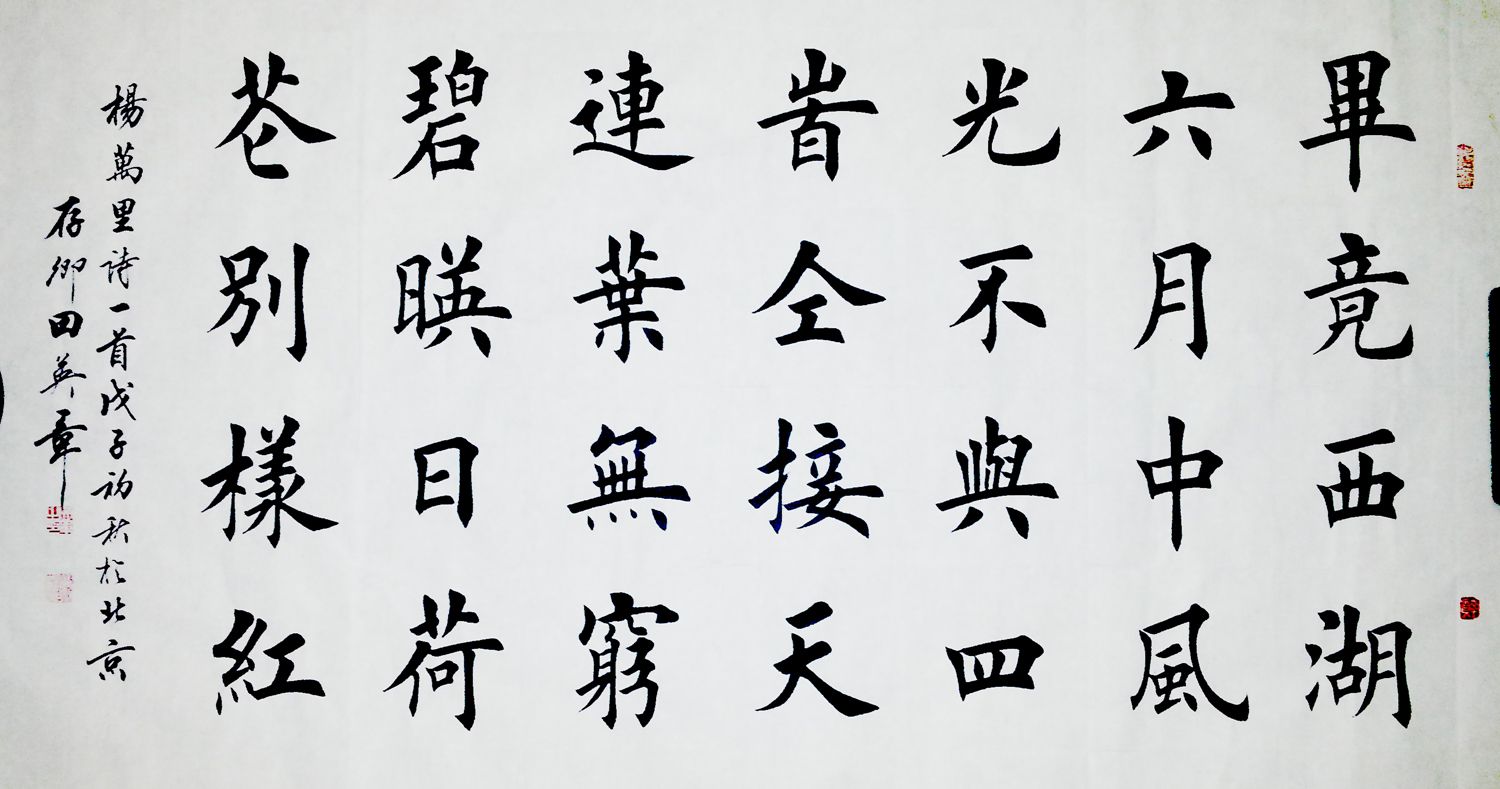 畢竟西湖
六月中風
光不與四
旹仝接天
連葉無窮
碧暎日荷
芲別樣紅
楊萬里詩一首戊子初秋於北京
存卿田英章